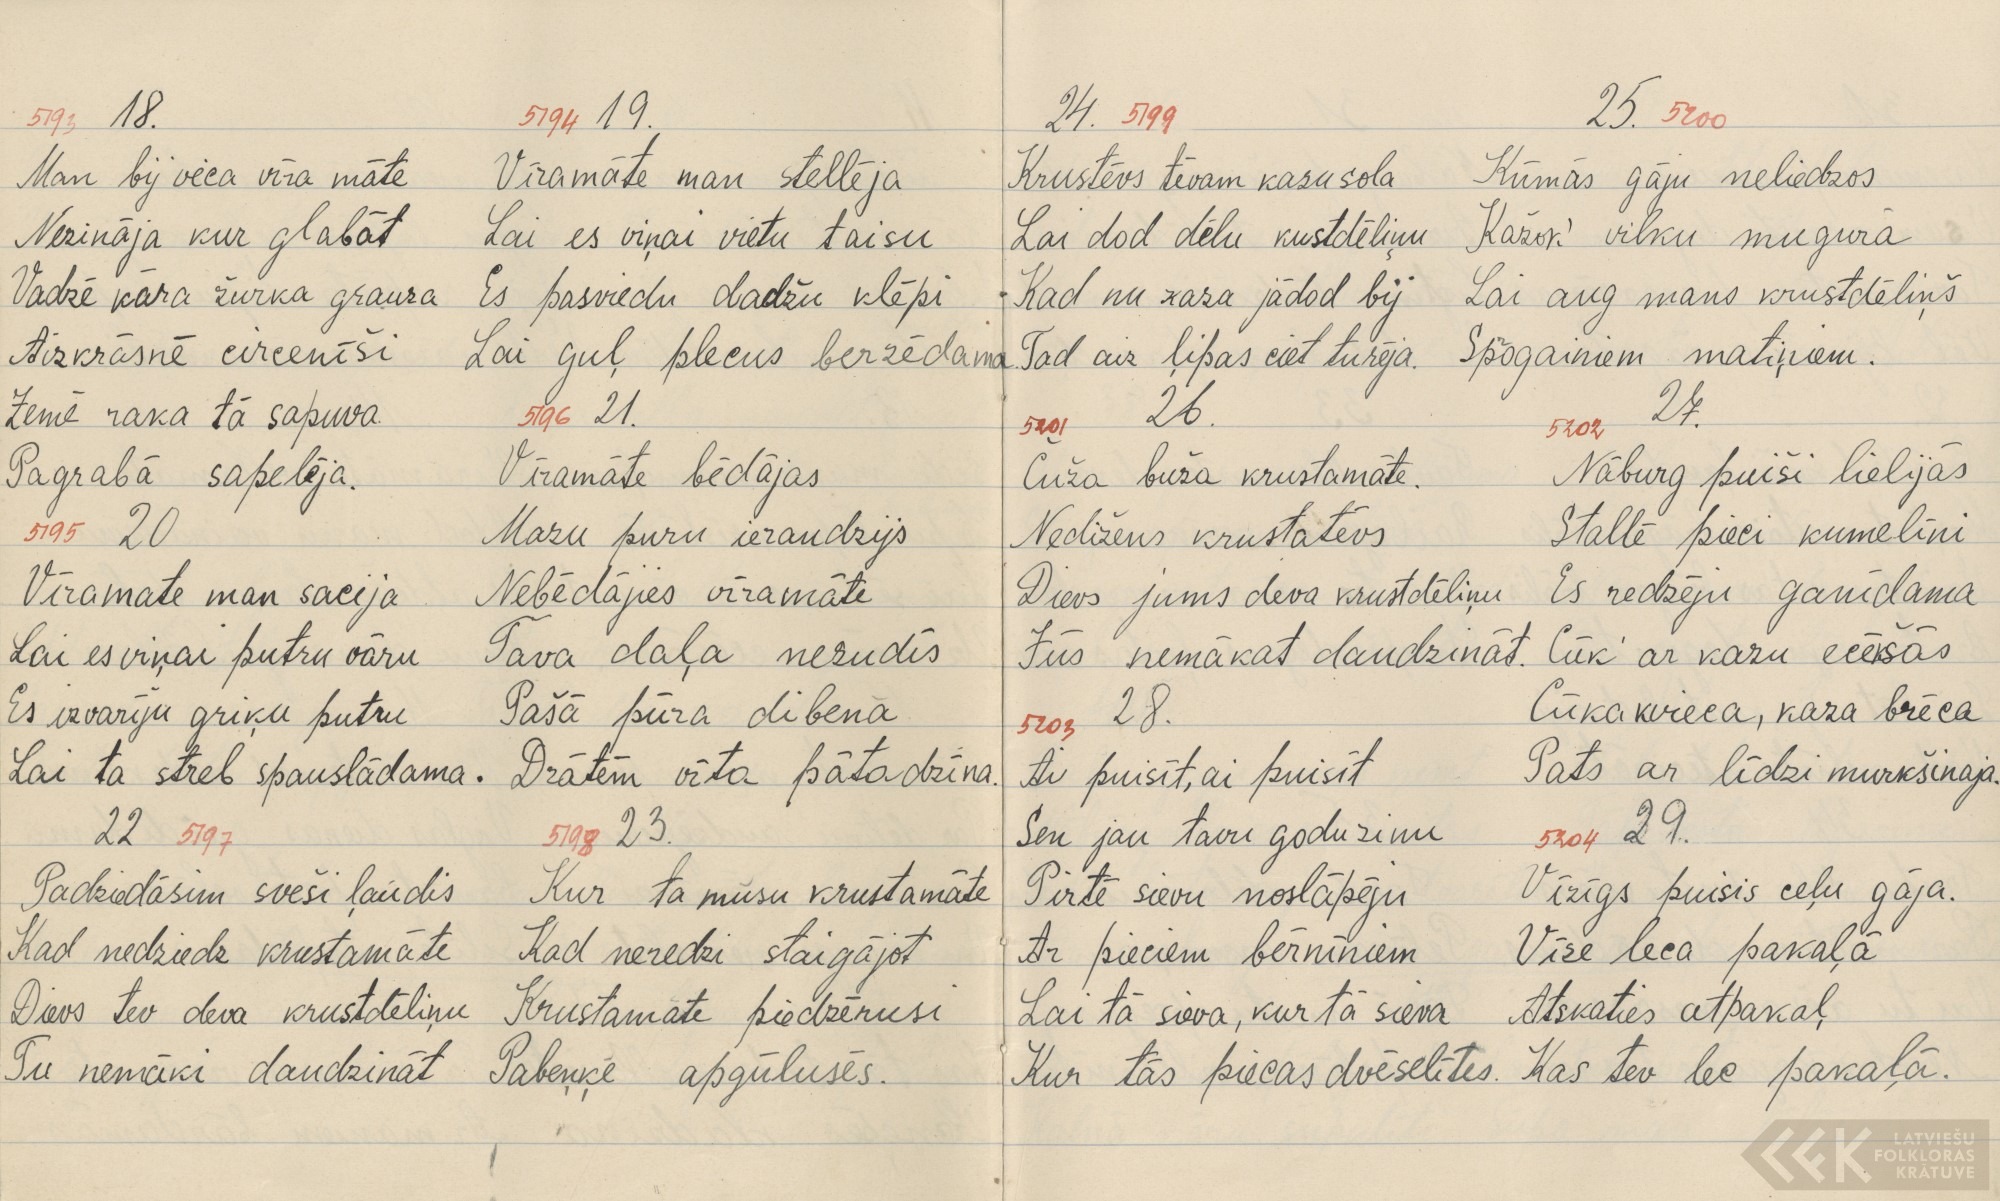 5193 18.
Man bij veca vīra māte
Nezināja kur glabāt
Vadzē kāra žurka grauza
Aizkrāsnē circenīši
Zemē raka tā sapuva
Pagrabā sapelēja.
5194 19.
Vīramāte man stellēja
Lai es viņai vietu taisu
Es pasviedu dadžu klēpi
Lai guļ plecus berzēdama.
5195 20
Vīramate man sacija
Lai es viņai putru vāru
Es izvarīju griķu putru
Lai ta streb spauslādama.
5196 21.
Vīramāte bēdājas
Mazu puru ieraudzijs
Nebēdājies vīramāte
Tava daļa nezudīs
Pašā pūra dibenā
Drātēm vīta pātadzīna.
22 5197
Padziedāsim sveši ļaudis
Kad nedziedz krustamāte
Dievs tev deva krustdēliņu
Tu nemāki daudzināt
5198 23.
Kur ta mūsu krustamāte
Kad neredzi staigājot
Krustamāte piedzērusi
Pabeņķē apgūlusēs.
24. 5199
Krustēvs tēvam kazu sola
Lai dod dēlu kustdēliņu
Kad nu kaza jādod bij
Tad aiz ļipas ciet turēja.
25. 5200
Kūmās gāju neliedzos
Kažok' vilku mugurā
Lai aug mans krustdēliņš
Sprogainiem matiņiem.
5201 26.
Čuža buža krustamāte.
Nedižens krustatēvs
Dievs jums deva krustdēliņu
Jūs nemākat daudzināt.
5202 27.
Nāburg puiši lielijās
Stallē pieci kumelīni
Es redzēju ganīdama
Cūk' ar kazu ecēkšās
Cūka kvieca, kaza brēca
Pats ar līdzi murkšinaja.
5203 28.
Ai puisīt, ai puisīt
Sen jau tavu godu zinu
Pirtē sievu noslāpēju
Ar pieciem bērnīniem
Lai tā sieva, kur tā sieva
Kur tās piecas dvēselītes.
5204 29.
Vīzīgs puisis ceļu gāja.
Vīze leca pakaļā
Atskaties atpakaļ
Kas tev lec pakaļā.
LATVIEŠU
FOLKLORAS
KRĀTUVE